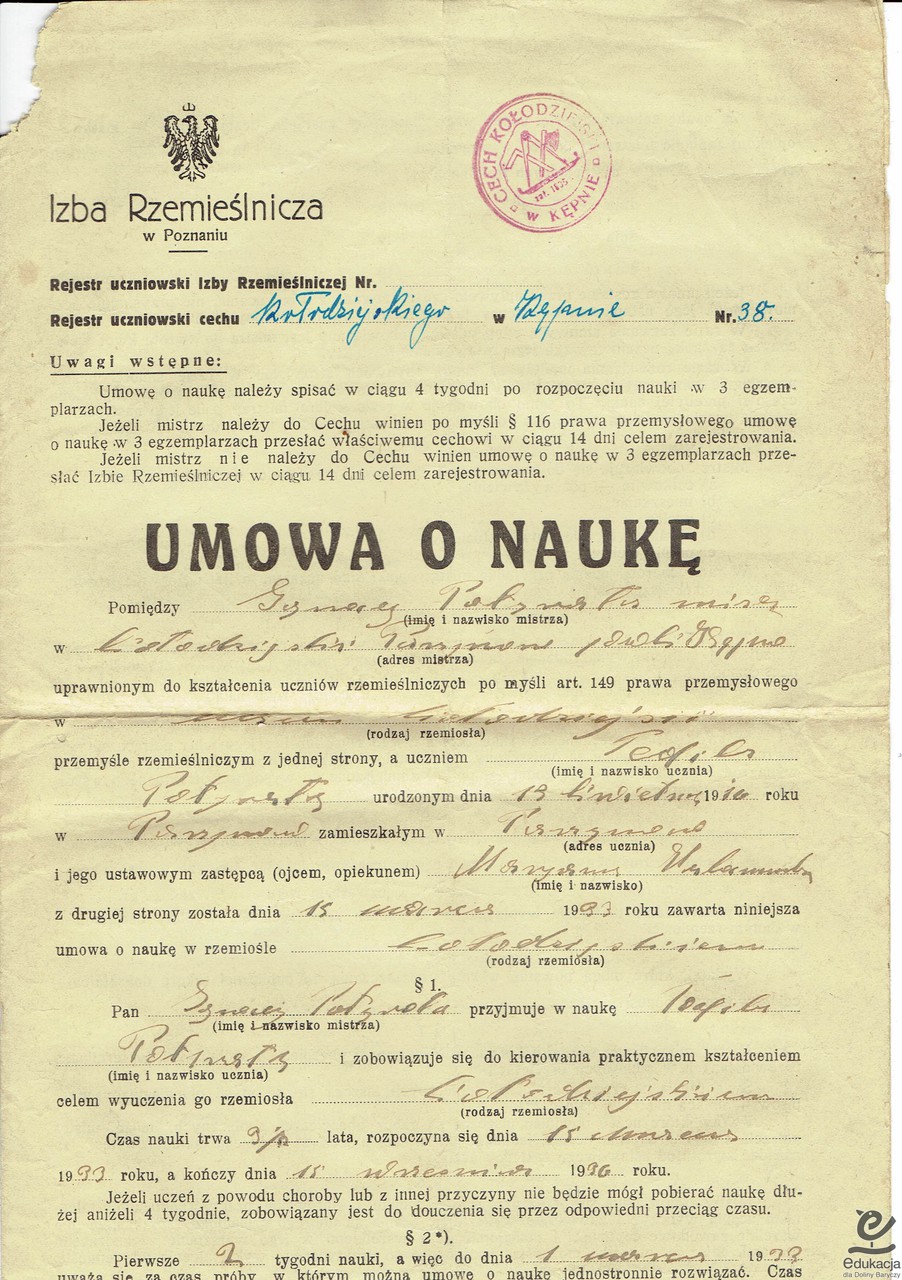 CECH KOŁODZIEJSKI
w KĘPNIE
Izba Rzemieślnicza
w Poznaniu
Rejestr uczniowski Izby Rzemieślniczej Nr.
Rejestr uczniowski cechu Kołodziejskiego w Kępnie Nr. 38.
Uwagi wstępne:
Umowę o naukę należy spisać w ciągu 4 tygodni po rozpoczęciu nauki w 3 egzem-
plarzach.
Jeżeli mistrz należy do Cechu winien po myśli § 116 prawa przemysłowego umowę
o naukę w 3 egzemplarzach przesłać właściwemu cechowi w ciągu 14 dni celem zarejestrowania.
Jeżeli mistrz nie należy do Cechu winien umowę o naukę w 3 egzemplarzach prze-
słać Izbie Rzemieślniczej w ciągu 14 dni celem zarejestrowania.
UMOWA O NAUKĘ
Pomiędzy Ignacy
(imię i nazwisko mistrza)
w
(adres mistrza)
uprawnionym do kształcenia uczniów rzemieślniczych po myśli art. 149 prawa przemysłowego
w
(rodzaj rzemiosła)
przemyśle rzemieślniczym z jednej strony, a uczniem Teofila
(imię i nazwisko ucznia)
urodzonym dnia 19 kwietnia 1916 roku
w zamieszkałym w
(adres ucznia)
i jego ustawowym zastępcą (ojcem, opiekunem)
(imię i nazwisko)
z drugiej strony została dnia 15 marca 1933 roku zawarta niniejsza
umowa o naukę w rzemiośle kołodziejskiem
(rodzaj rzemiosła)
§ 1.
Pan Ignacy przyjmuje w naukę Teofila
(imię i nazwisko mistrza)
i zobowiązuje się do kierowania praktycznem kształceniem
(imię i nazwisko ucznia)
celem wyuczenia go rzemiosła kołodziejskiem
(rodzaj rzemiosła)
Czas nauki trwa lata, rozpoczyna się dnia 15 marca
1933 roku, a kończy dnia 15 września 1936 roku.
Jeżeli uczeń z powodu choroby lub z innej przyczyny nie będzie mógł pobierać naukę dłu-
żej aniżeli 4 tygodnie, zobowiązany jest do douczenia się przez odpowiedni przeciąg czasu.
§ 2*).
Pierwsze tygodni nauki, a więc do dnia 1 marca 1933
uważa się za czas próby w którym można umowę o naukę jednostronnie rozwiązać. Czas
edukacja
dla Doliny Baryczy